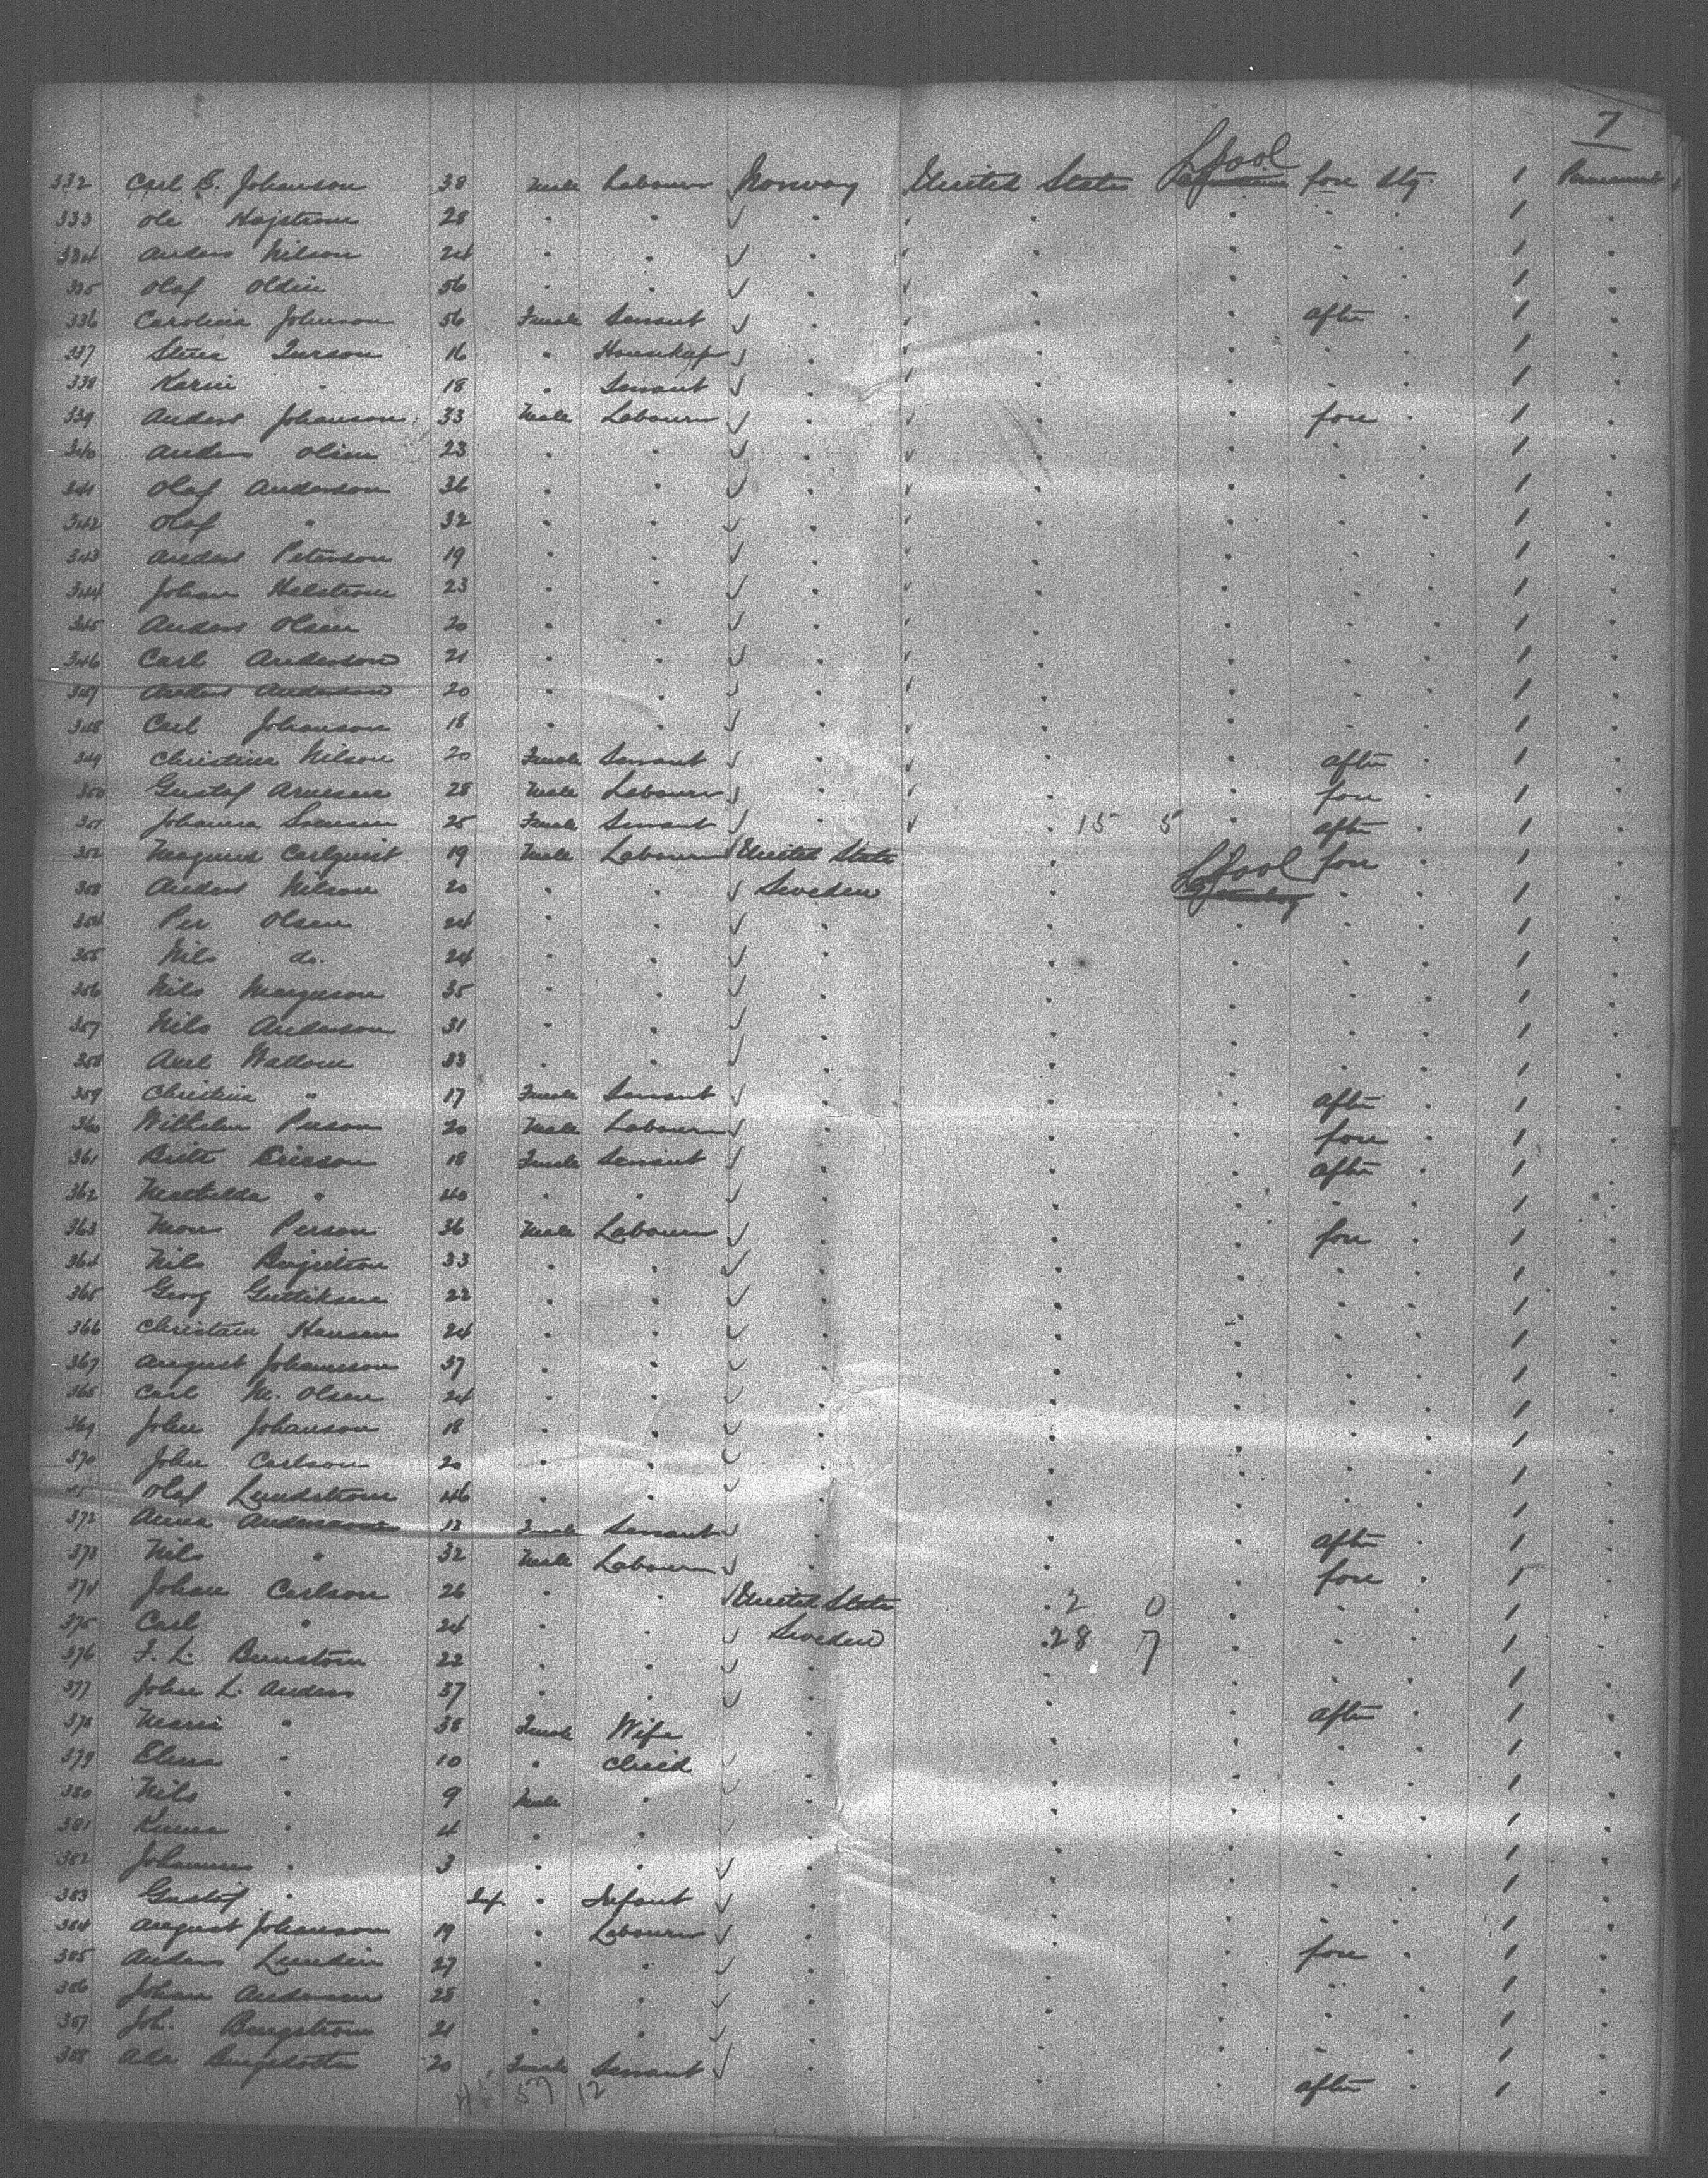 7
332 Carl E. Johanson 38 Male Labourer Norway United States L'pool fore Stg. 1 Permanent
333 Ole Hajstrom 28 " " " " " " " 1 "
334 Anders Nilson 24 " " " " " " " 1 "
335 Olaf Oldin 56 " " " " " " " 1 "
336 Carolina Johnson 56 Female Servant " " " after " 1 "
337 Stina Turson 16 " Housekeeper " " " " " 1 "
338 Karin " 18 " Servant " " " " " 1 "
339 Anders Johanson 33 Male Labourer " " " fore " 1 "
340 Anders Olsen 23 " " " " " " " 1 "
341 Olaf Anderson 36 " " " " " " " 1 "
342 Olaf " 32 " " " " " " " 1 "
343 Anders Peterson 19 " " " " " " " 1 "
344 Johan Helstrom 23 " " " " " " " 1 "
345 Anders Olsen 20 " " " " " " " 1 "
346 Carl Anderson 21 " " " " " " " 1 "
347 Anders Anderson 20 " " " " " " " 1 "
348 Carl Johanson 18 " " " " " " " 1 "
349 Christina Nilson 20 Female Servant " " " after " 1 "
350 Gustaf Arnesen 28 Male Labourer " " " fore " 1 "
351 Johanna Swensen 25 Female Servant " " 15 5 " after " 1 "
352 Magnus Carlquist 19 Male Labourer United States " L'pool fore " 1 "
353 Anders Nilson 20 " " Sweden " " " 1 "
354 Per Olsen 24 " " " " " " " 1 "
355 Nils do. 24 " " " " " " " 1 "
356 Nils Magnson 35 " " " " " " " 1 "
357 Nils Anderson 31 " " " " " " " 1 "
358 Axel Wallom 33 " " " " " " " 1 "
359 Christina " 17 Female Servant " " " after " 1 "
360 Wilhelm Person 20 Male Labourer " " " fore " 1 "
361 Brita Ericson 18 Female Servant " " " after " 1 "
362 Mathilda " 40 " " " " " " " 1 "
363 Mons Person 36 Male Labourer " " " fore " 1 "
364 Nils 33 " " " " " " " 1 "
365 Georg 22 " " " " " " " 1 "
366 Christain Hansen 24 " " " " " " " 1 "
367 August Johansson 37 " " " " " " " 1 "
368 Carl M. Olsen 24 " " " " " " " 1 "
369 John Johanson 18 " " " " " " " 1 "
370 John Carlson 20 " " " " " " " 1 "
Olaf Lundstrom 46 " " " " " " " 1 "
372 Anna Anderson 12 Female Servant " " " after " 1 "
373 Nils " 32 Male Labourer " " " fore " 1 "
374 Johan Carlson 26 " " United States " 2 0 " " " 1 "
375 Carl " 24 " " Sweden " 28 7 " " " 1 "
376 F. L. 22 " " " " " " " 1 "
377 John L. Anders 37 " " " " " " " 1 "
378 Maria " 38 Female Wife " " " after " 1 "
379 Elena " 10 " Child " " " " " 1 "
380 Nils " 9 Male " " " " " " 1 "
381 " 4 " " " " " " " 1 "
382 Johannes " 3 " " " " " " " 1 "
383 Gustaf " Inf. " Infant " " " " " 1 "
384 August Johanson 19 " Labourer " " " fore " 1 "
385 Anders Lundin 27 " " " " " " " 1 "
386 Johan Anderson 28 " " " " " " " 1 "
387 Joh. Bergstrom 21 " " " " " " " 1 "
388 20 Female Servant " " " after " 1 "
57 12